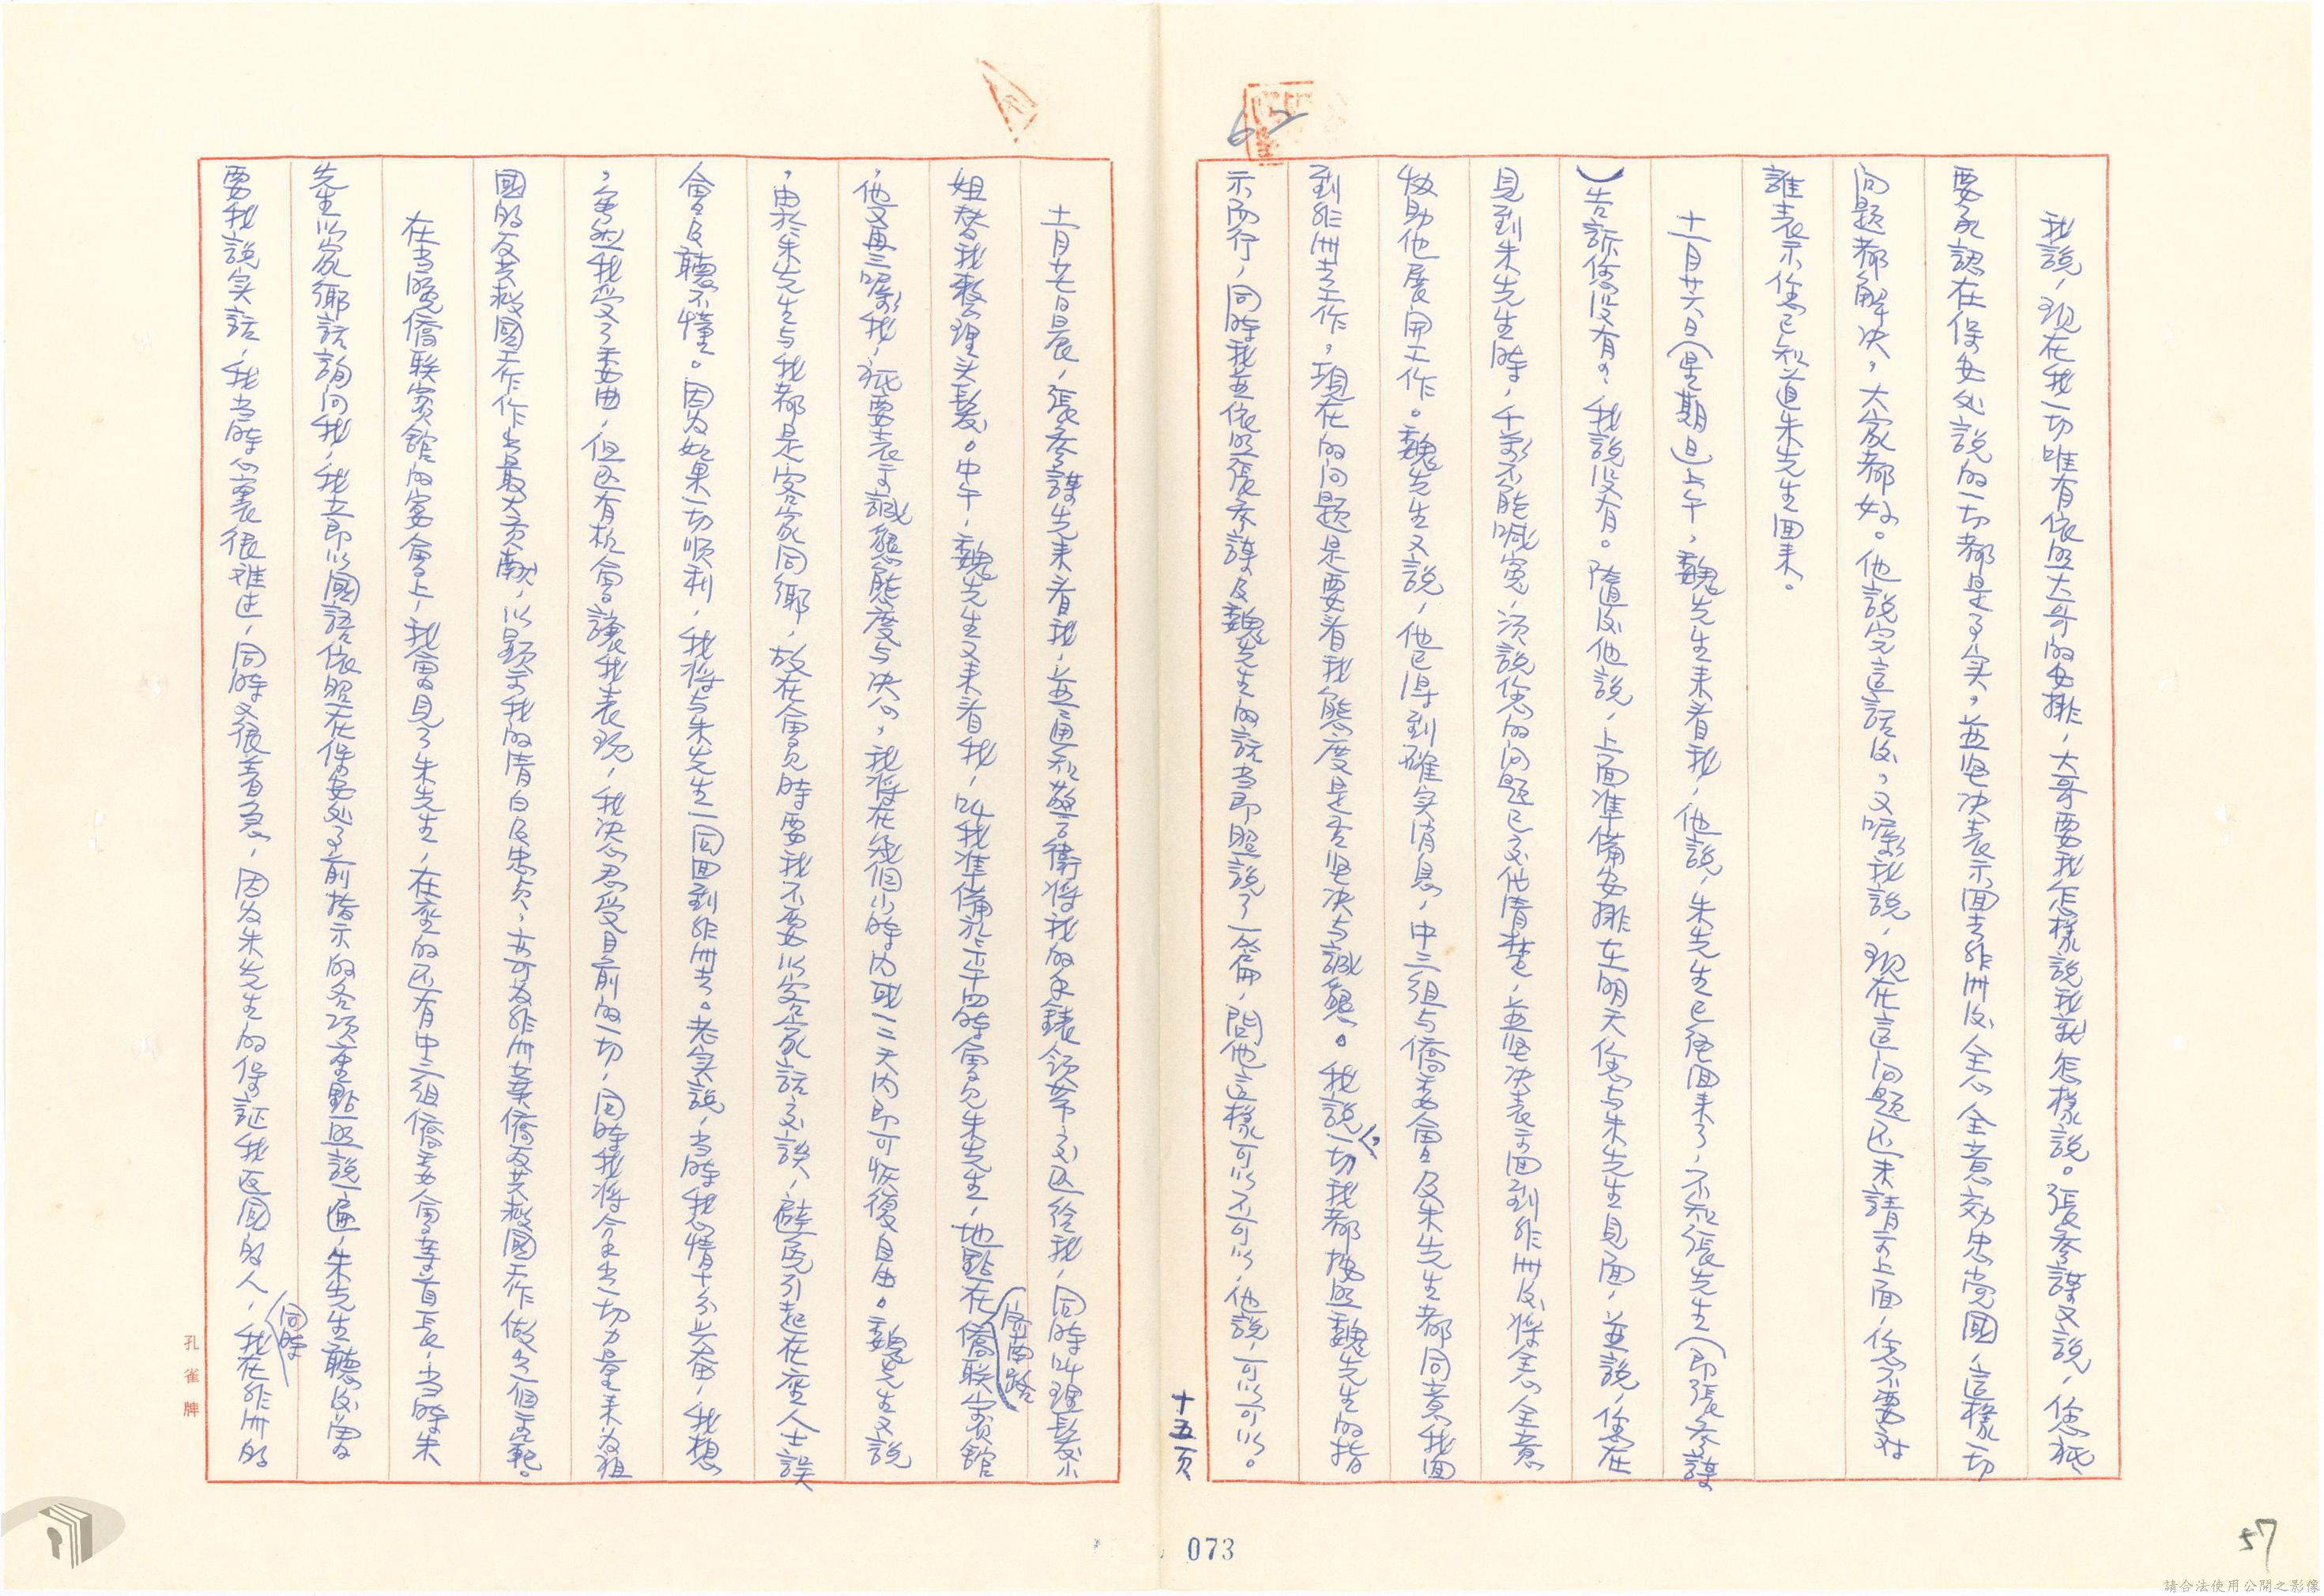 我說，現在我一切唯有依照大哥的安排，大哥要我怎樣說我就怎樣說。張參謀又說，您祇
要承認在保安处說的一切都是事实。並坚决表示回去非洲後全心全意効忠党國，這樣一切
问題都解决，大家都好。他說完這話後，又囑我說，现在這问題还未請示上面，您不要对
誰表示您已知道朱先生回来。
十一月廿六日(星期日)上午，魏先生来看我，他說，朱先生已經回来了，不知張先生(即張參謀
)告訴您沒有？我說沒有。隨後他說，上面準備安排在明天您与朱先生見面，並說，您在
見到朱先生時，千萬不能喊寃，須說您的问题已交代清楚，並坚决表示回到非洲後將全心全意
协助他展开工作。魏先生又說，他已得到確实消息，中三组与僑委會及朱先生都同意我回
到非洲去工作。現在的问題是要看我態度是否坚决与誠懇。我說一切我都按照魏先生的指
示而行，同時我並依照張參謀及魏先生的話当即照說了一篇，問他這樣可以不可以，他說，可以可以。
十五页
十一月廿七日晨，張參謀先来看我，並通知警衛將我的手錶領帶交还给我，同時叫理髮小
姐替我整理头髮。中午，魏先生又来看我，叫我準備於下午四時會見朱先生，地點在濟南路僑联賓館
，他又再三囑我，祇要表示誠懇態度与决心，我將在幾個小時內或一二天内即可恢復自由。魏先生又說
，由於朱先生与我都是客家同鄉，故在會見時要我不要以客家話交談，避免引起在座人士誤
會及聽不懂。因为如果一切順利，我將与朱先生一同回到非洲去。老实說，当時我心情十分兴奋，我想
，虽然我受了委曲，但还有机會讓我表現，我决心忍受目前的一切，同時我將今全力一切力量来为祖
國的反共救國工作作出最大贡献，以顯示我的清白及忠貞，亦可为非洲華僑反共救國工作做出一個示範。
在当晚僑联賓館的宴會上，我會見了朱先生，在座的还有中三组僑委會等首長，当時朱
先生以家鄉話詢问我，我立即以國語依照在保安处事前指示的各項重點照說一遍，朱先生聽後尚
要我說实話，我当時心裏很难过，同時又很着急，因为朱先生的保証我返國的人，同時我在非洲的
孔雀牌
073
57
請合法使用公開之影像